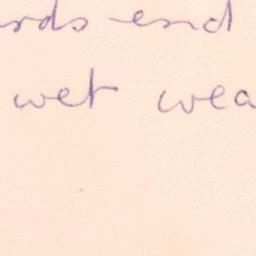 rds end
wet wea